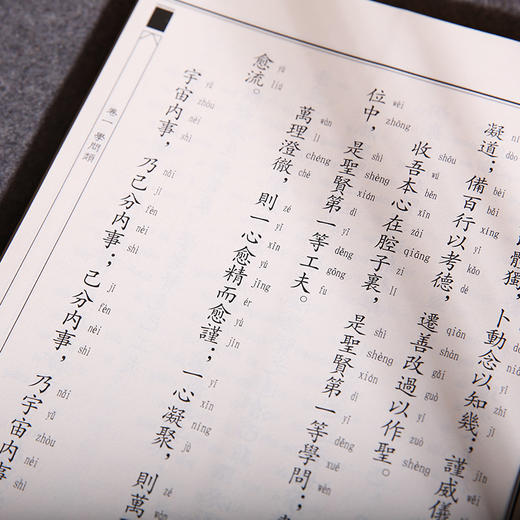 體獨，卜動念以知幾；謹威儀
凝道；備百行以考德，遷善改過以作聖。
qiān shàn gǎi guò yǐ zuò shèng
收吾本心在腔子裏，是聖賢第一等學問；
shōu wú běn xīn zài qiāng zi lǐ shì shèng xián dì yī děng xué wèn
位中，是聖賢第一等工夫。
wèi zhōng shì shèng xián dì yī děng gōng fu
萬理澄徹，則一心愈精而愈謹；一心凝聚，則萬
wàn lǐ chéng chè zé yī xīn yù jīng ér yù jǐn yī xīn níng jù zé wàn
愈流。
yù liú
宇宙內事，乃己分內事；己分內事，乃宇宙內事
yǔ zhòu nèi shì nǎi jǐ fèn nèi shì jǐ fèn nèi shì nǎi yǔ zhòu nèi shì
卷一 學問類